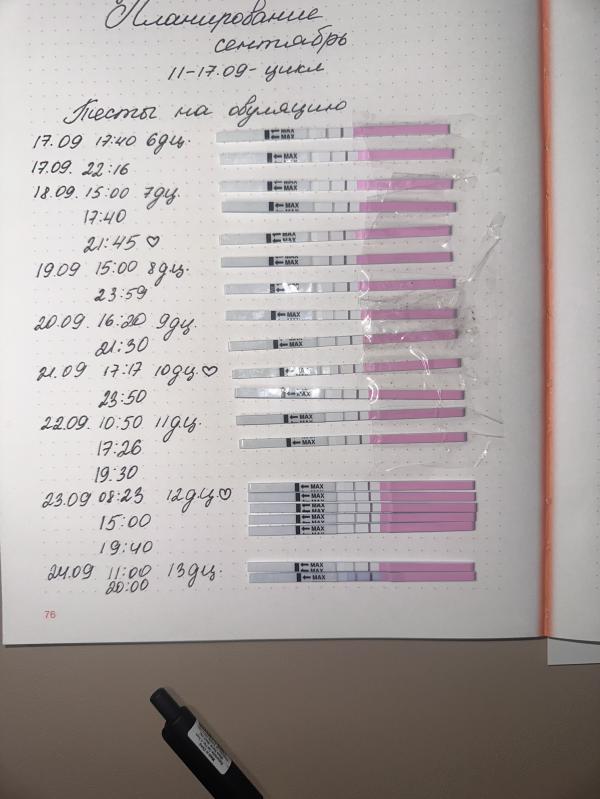 Планирование
сентябрь
11-17.09 - цикл
Тесты на овуляцию
17.09 17:40 6дц.
17.09. 22:16
18.09. 15:00 7дц.
17:40
21:45 ♡
19.09 15:00 8дц.
23:59
20.09. 16:20 9дц.
21:30
21.09 17:17 10дц. ♡
23:50
22.09. 10:50 11дц.
17:26
19:30
23.09 08:23 12дц ♡
15:00
19:40
24.09 11:00 13дц.
20:00
76
MAX
MAX
MAX
MAX
MAX
MAX
MAX
MAX
MAX
MAX
MAX
MAX
MAX
MAX
MAX
MAX
MAX
MAX
MAX
MAX